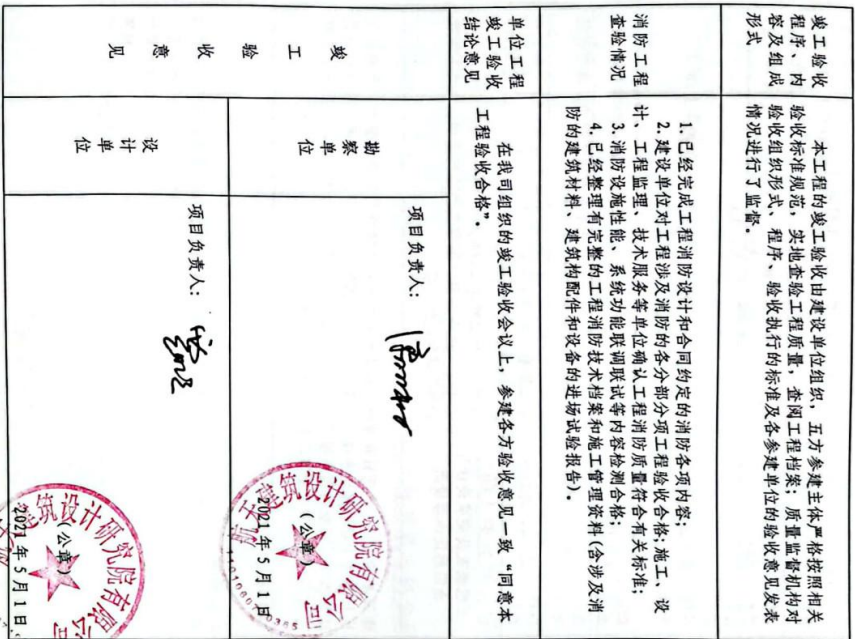 竣工验收
程序、内
容及组成
形式
本工程的竣工验收由建设单位组织,五方参建主体严格按照相关
验收标准规范,实地查验工程质量,查阅工程档案;质量监督机构对
验收组织形式、程序、验收执行的标准及各参建单位的验收意见发表
情况进行了监督。
消防工程
查验情况
1.已经完成工程消防设计和合同约定的消防各项内容;
2.建设单位对工程涉及消防的各分部分项工程验收合格;施工、设
计、工程监理、技术服务等单位确认工程消防质量符合有关标准;
3.消防设施性能、系统功能联调联试等内容检测合格;
4.已经整理有完整的工程消防技术档案和施工管理资料(含涉及消
防的建筑材料、建筑构配件和设备的进场试验报告)。
单位工程
竣工验收
结论意见
在我司组织的竣工验收会议上,参建各方验收意见一致“同意本
工程验收合格”。
竣工验收意见
勘察
单位
项目负责人:
航天建筑设计研究院有限公司
(公章)
2021年5月1日
设计
单位
项目负责人:
建筑设计研究院有限公司
(公章)
2021年5月1日